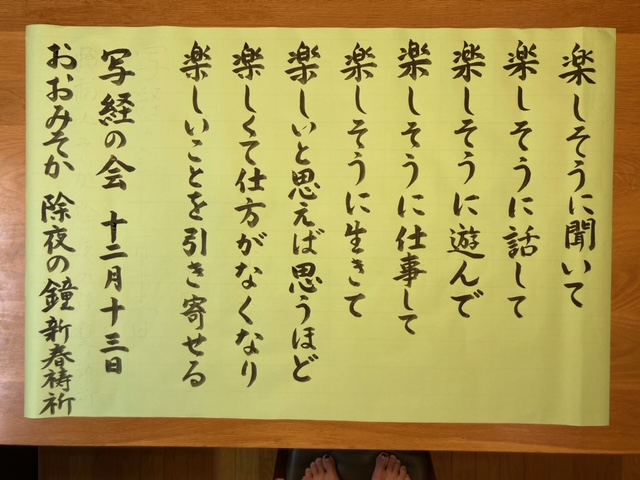 楽しそうに聞いて
楽しそうに話して
楽しそうに遊んで
楽しそうに仕事して
楽しそうに生きて
楽しいと思えば思うほど
楽しくて仕方がなくなり
楽しいことを引き寄せる
写経の会 十二月十三日
おおみそか 除夜の鐘 新春祷祈